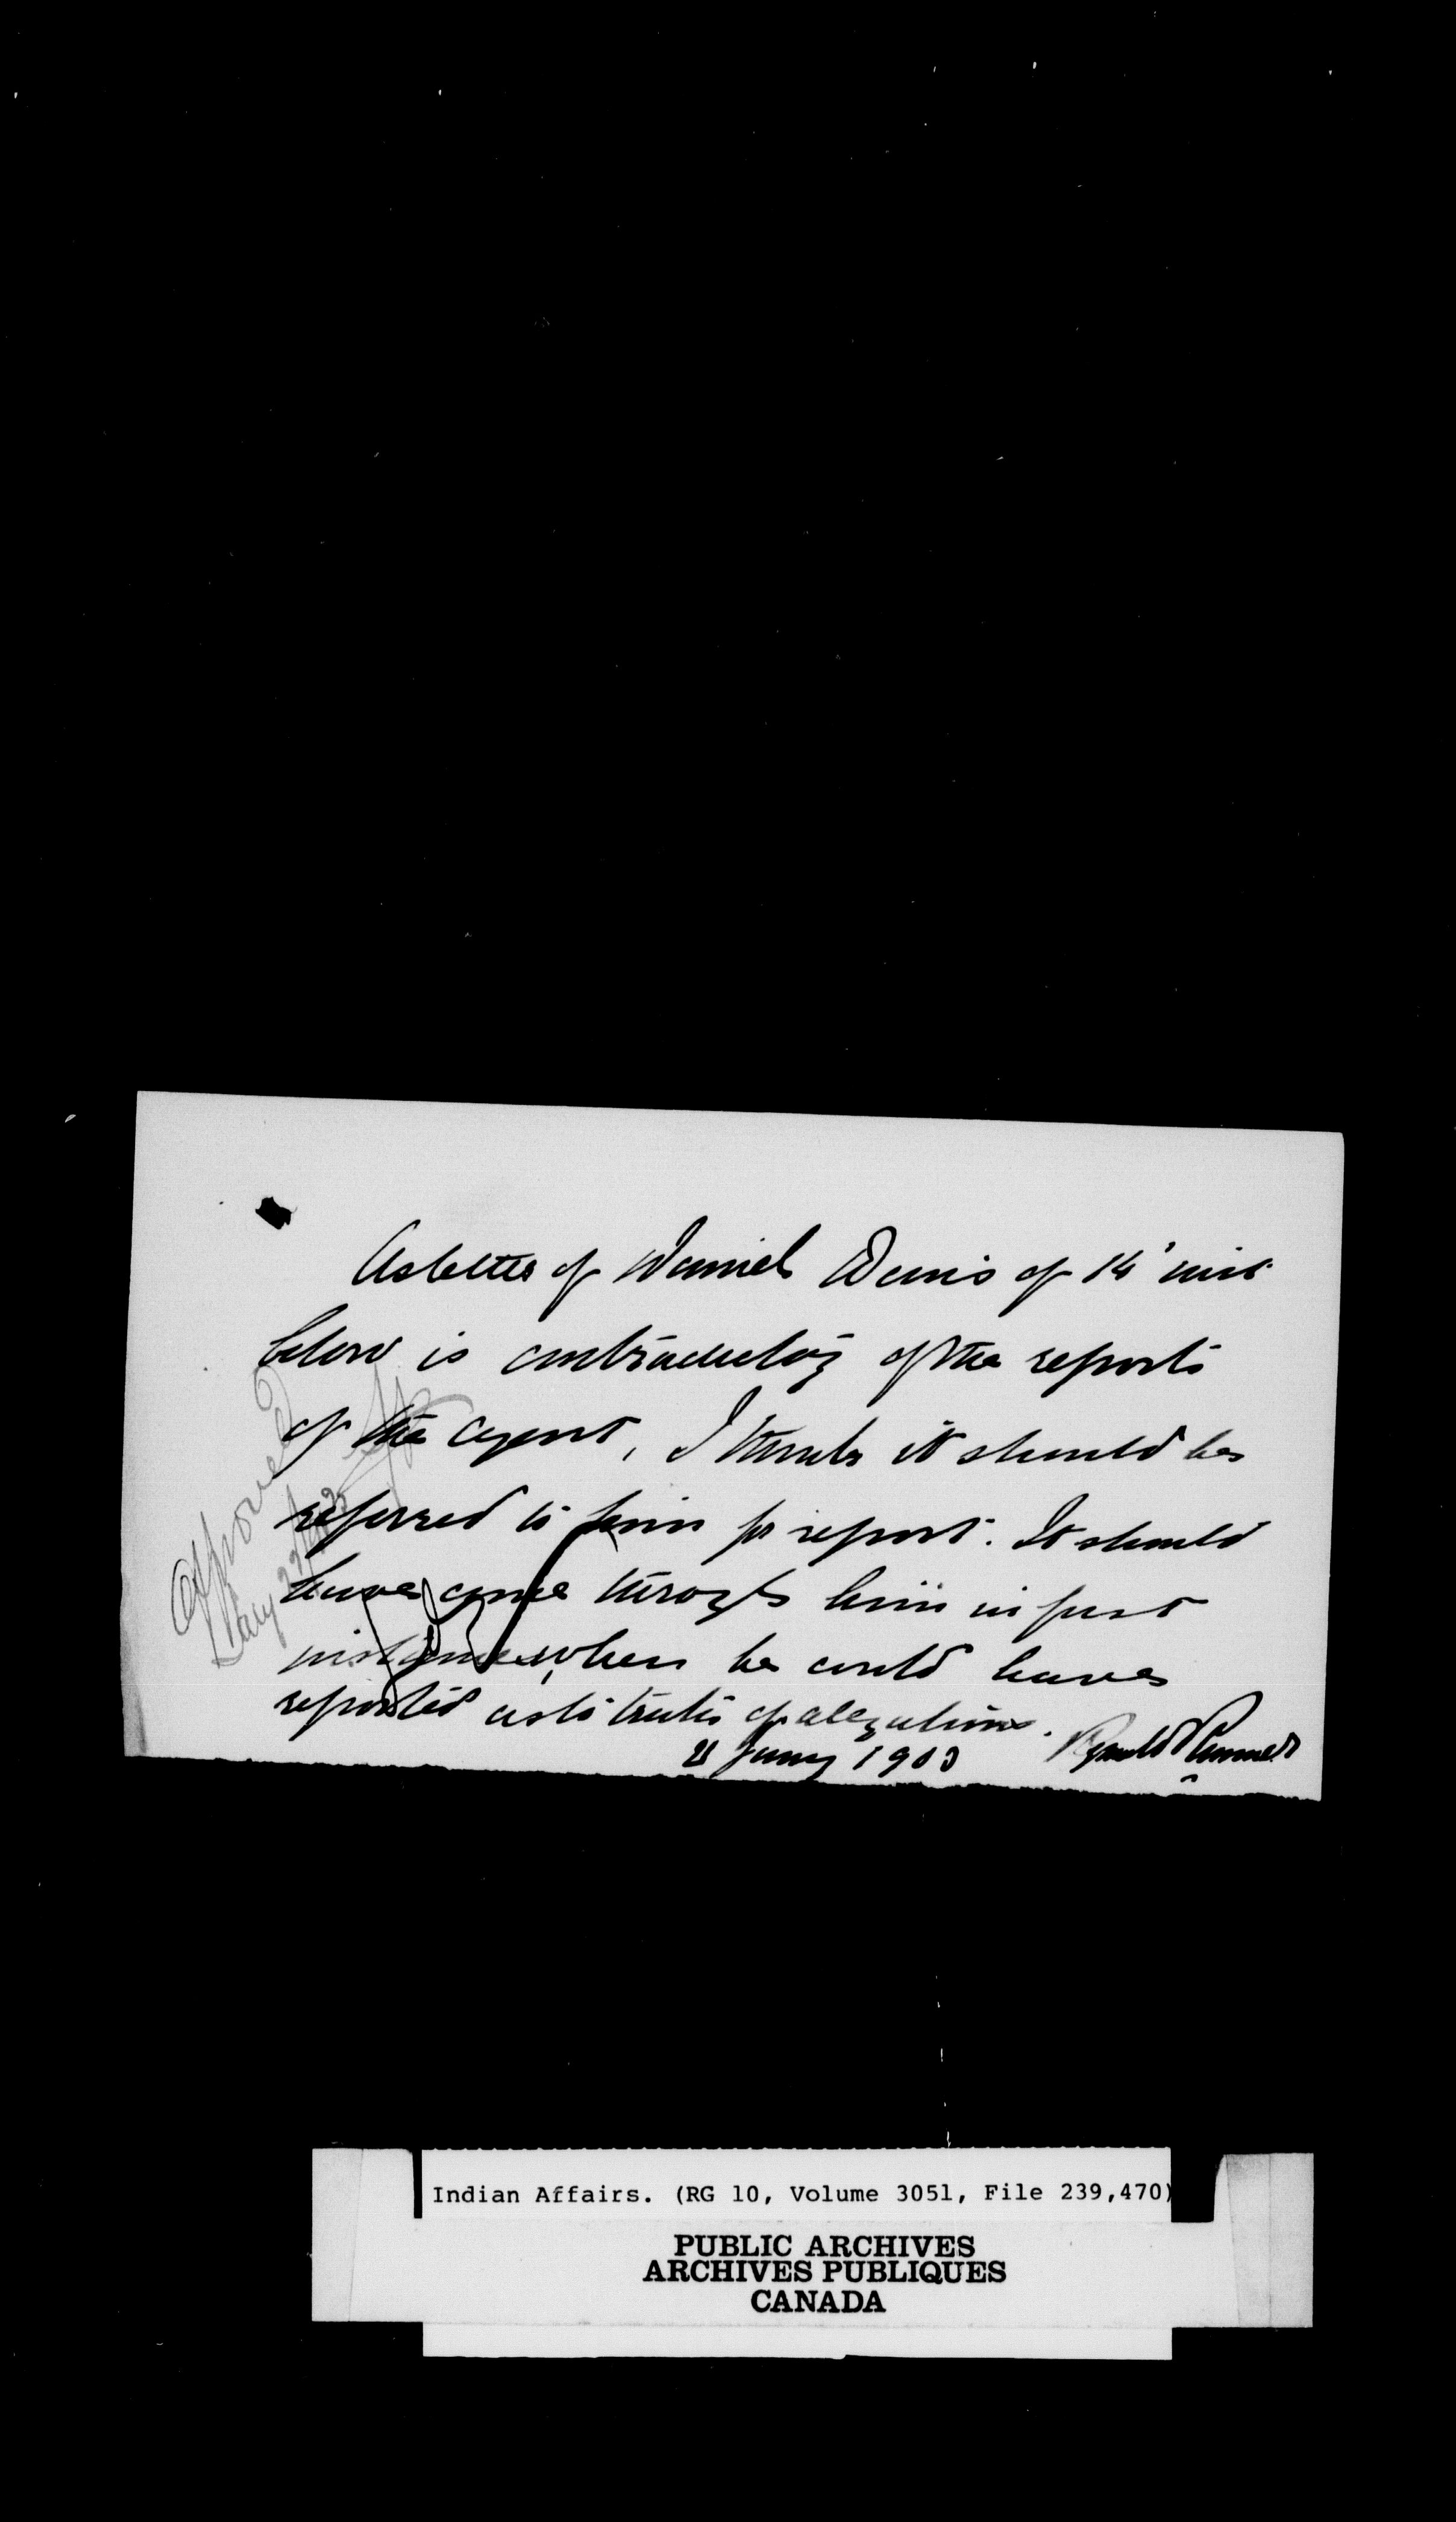 As letter of Daniel Denis of 14' inst
below is contradictory of the reports
of the agent, I think it should be
referred to him for report. It should
have come through him in first
instance when he could have
reported as to truth of allegations.
21 Jany 1903 Reginald Rimmer
Approved
Jany 22
Indian Affairs. (RG 10, Volume 3051, File 239,470)
PUBLIC ARCHIVES
ARCHIVES PUBLIQUES
CANADA